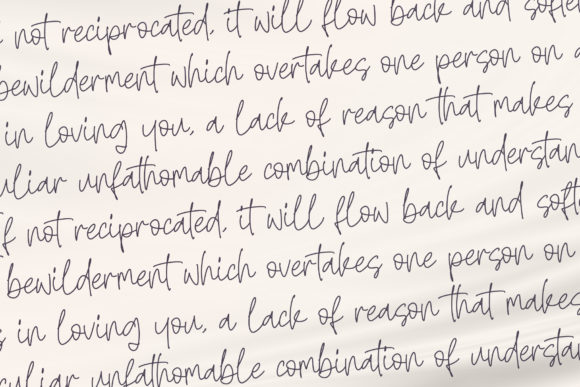 not reciprocated, it will flow back and
bewilderment which overtakes one person on
in loving you, a lack of reason that makes
unfathomable combination of
If not reciprocated, it will flow back and
bewilderment which overtakes one person on
in loving you, a lack of reason that makes
unfathomable combination of